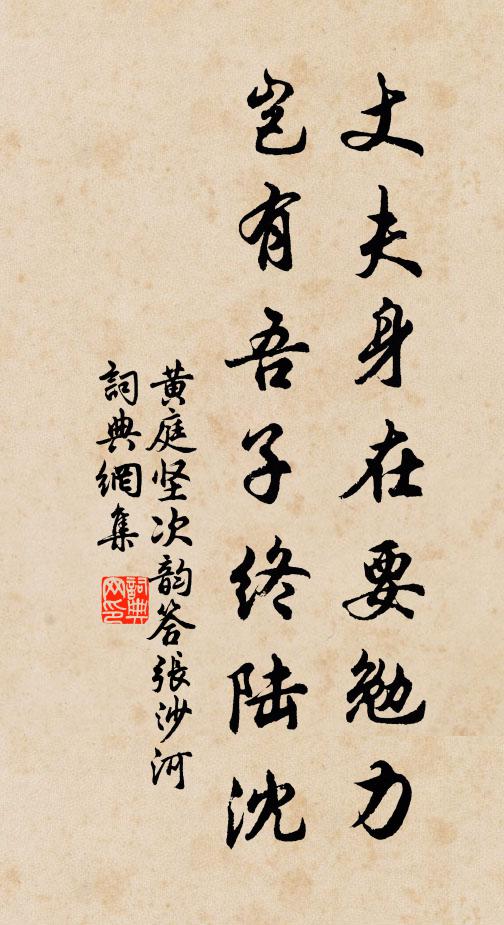 丈夫身在要勉力
岂有吾子终陆沈
黄庭坚次韵答張沙河
詞典網集
詞典网印